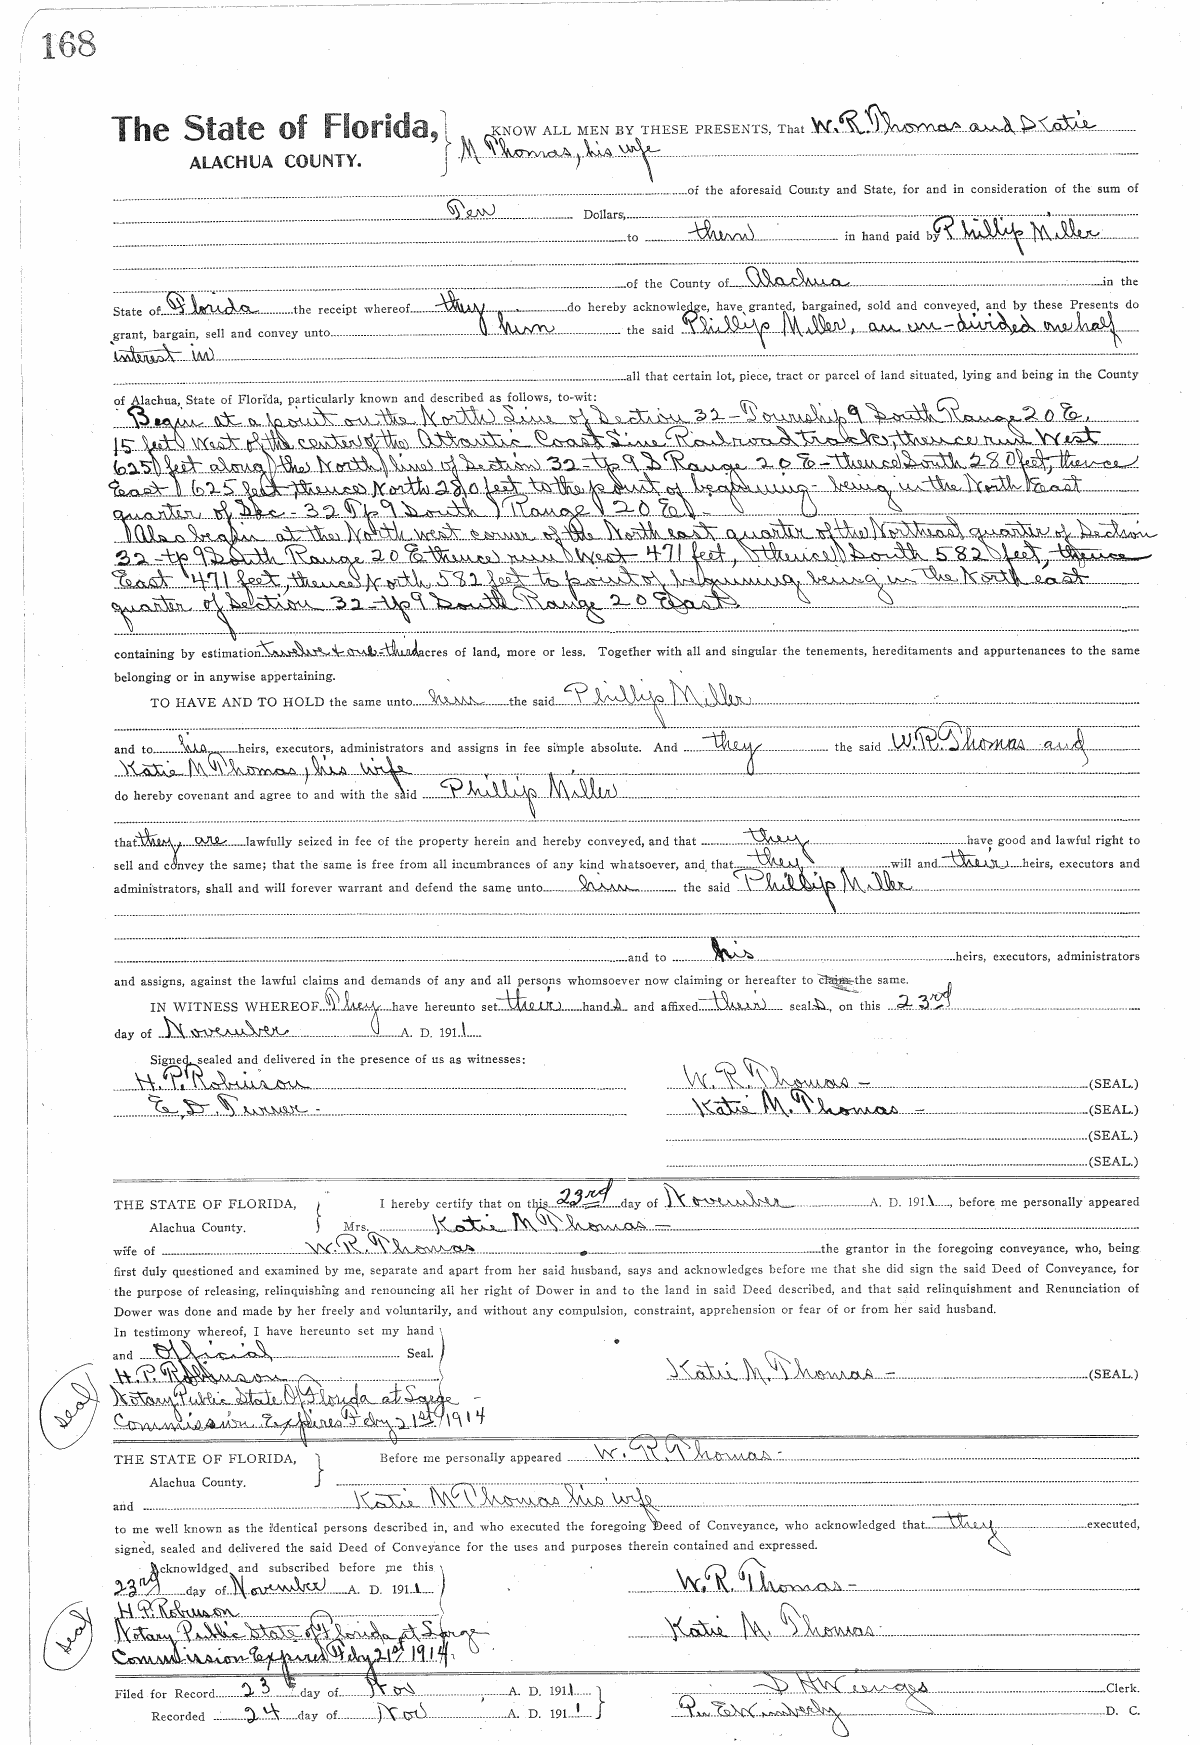 168
The State of Florida, KNOW ALL MEN BY THESE PRESENTS, That W. R. Thomas and Katie
ALACHUA COUNTY. M Thomas, his wife
of the aforesaid County and State, for and in consideration of the sum of
Ten Dollars,
to them in hand paid by Phillip Miller
of the County of Alachua in the
State of Florida the receipt whereof they do hereby acknowledge, have granted, bargained, sold and conveyed, and by these Presents do
grant, bargain, sell and convey unto him the said Phillip Miller, an un-divided one half
interest in
all that certain lot, piece, tract or parcel of land situated, lying and being in the County
of Alachua, State of Florida, particularly known and described as follows, to-wit:
Begin at a point on the North Line of Section 32 - Township 9 South Range 20 E,
15 feet West of the center of the Atlantic Coast Line Railroad track, thence run West
625 feet along the North line of Section 32 - tp 9 S Range 20 E - thence South 280 feet, thence
East 625 feet, thence North 280 feet to the point of beginning - being in the North East
quarter of Sec - 32 Tp 9 South Range 20 E.
Also begin at the North west corner of the North east quarter of the Northeast quarter of Section
32 - tp 9 South Range 20 E thence run West 471 feet, thence South 582 feet, thence
East 471 feet, thence North 582 feet to point of beginning being in The North east
quarter of Section 32 - tp 9 South Range 20 East
containing by estimation twelve & one-third acres of land, more or less. Together with all and singular the tenements, hereditaments and appurtenances to the same
belonging or in anywise appertaining.
TO HAVE AND TO HOLD the same unto him the said Phillip Miller
and to his heirs, executors, administrators and assigns in fee simple absolute. And they the said W. R. Thomas and
Katie M Thomas, his wife
do hereby covenant and agree to and with the said Phillip Miller
that they are lawfully seized in fee of the property herein and hereby conveyed, and that they have good and lawful right to
sell and convey the same; that the same is free from all incumbrances of any kind whatsoever, and that they will and their heirs, executors and
administrators, shall and will forever warrant and defend the same unto him the said Phillip Miller
and to his heirs, executors, administrators
and assigns, against the lawful claims and demands of any and all persons whomsoever now claiming or hereafter to claim the same.
IN WITNESS WHEREOF They have hereunto set their hands and affixed their seals, on this 23rd
day of November A. D. 1911
Signed, sealed and delivered in the presence of us as witnesses:
H. P. Robinson W. R. Thomas - (SEAL.)
E. D. Turner - Katie M. Thomas - (SEAL.)
(SEAL.)
(SEAL.)
THE STATE OF FLORIDA, I hereby certify that on this 23rd day of November A. D. 1911, before me personally appeared
Alachua County. Mrs. Katie M Thomas -
wife of W. R. Thomas the grantor in the foregoing conveyance, who, being
first duly questioned and examined by me, separate and apart from her said husband, says and acknowledges before me that she did sign the said Deed of Conveyance, for
the purpose of releasing, relinquishing and renouncing all her right of Dower in and to the land in said Deed described, and that said relinquishment and Renunciation of
Dower was done and made by her freely and voluntarily, and without any compulsion, constraint, apprehension or fear of or from her said husband.
In testimony whereof, I have hereunto set my hand
and Official Seal.
H. P. Robinson Katie M. Thomas - (SEAL)
seal Notary Public State Of Florida at Large -
Commission Expires Feby 21st 1914
THE STATE OF FLORIDA, Before me personally appeared W. R. Thomas -
Alachua County.
and Katie M Thomas his wife
to me well known as the identical persons described in, and who executed the foregoing Deed of Conveyance, who acknowledged that they executed,
signed, sealed and delivered the said Deed of Conveyance for the uses and purposes therein contained and expressed.
Acknowldged and subscribed before me this
23rd day of November A. D. 1911 W. R. Thomas -
H. P. Robinson
seal Notary Public State of Florida at Large Katie M. Thomas
Commission Expires Feby 21st 1914.
Filed for Record 23 day of Nov A. D. 1911 Clerk.
Recorded 24 day of Nov A. D. 1911 Per E Wimberly D. C.